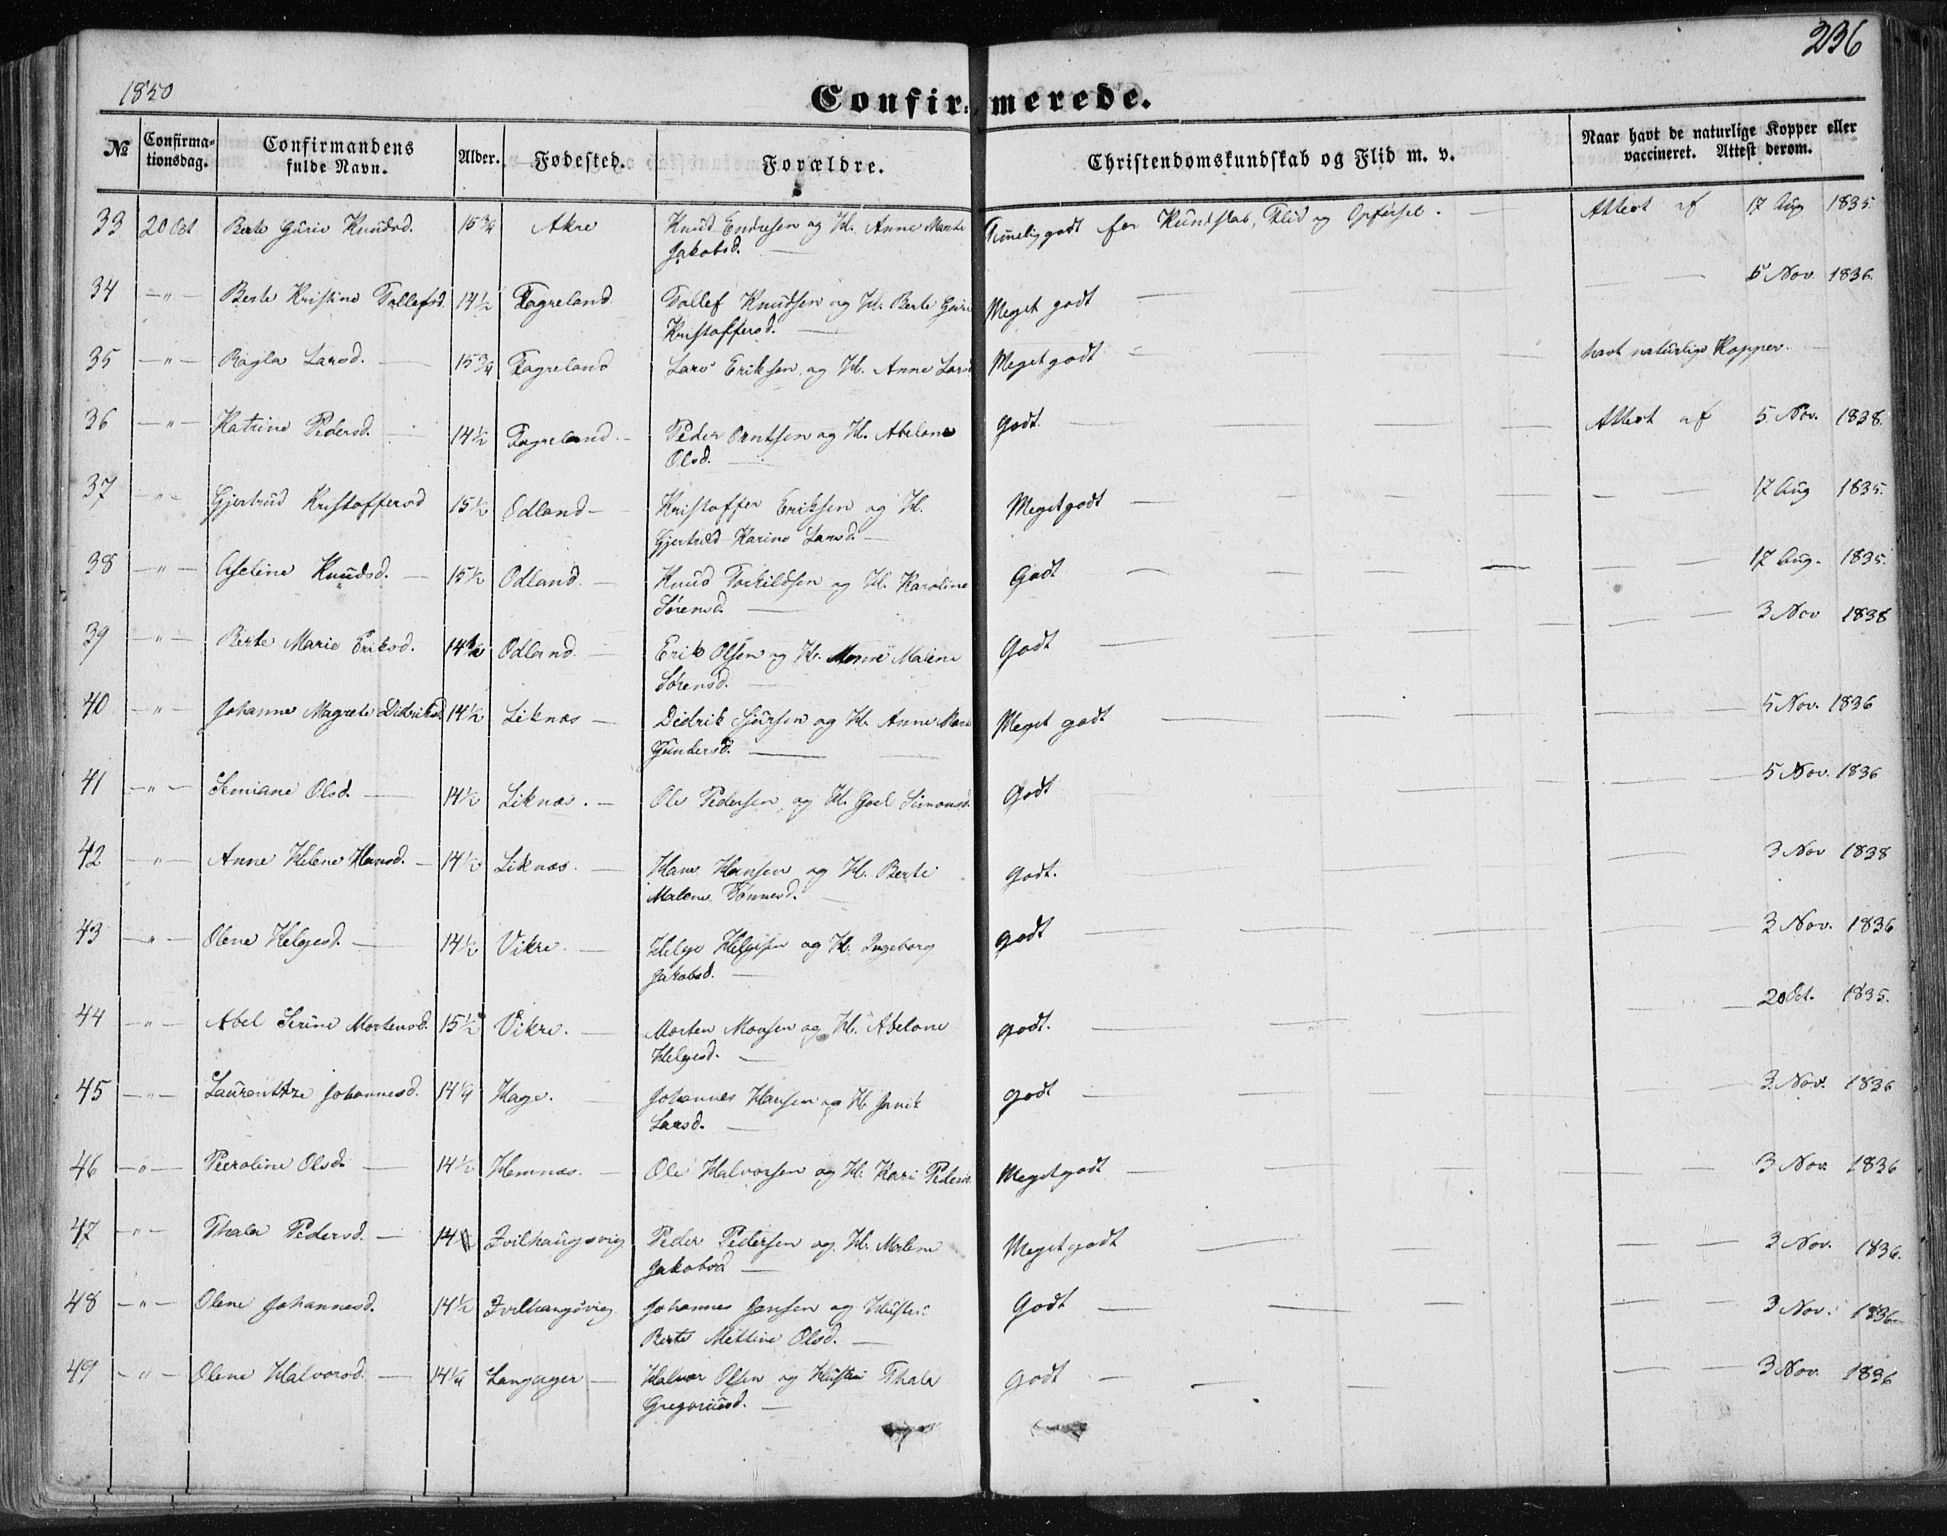 236
1850
Confirmerede.
№ Confirma-tionsdag. Confirmandens fulde Navn. Alder. Fødested. Forældre. Christendomskundskab og Flid m. v. Naar havt de naturlige Kopper eller vaccineret. Attest derom.
33 20 Oct Berte Gurie Knudsd. 15 3/4 Akre Knud Endresen og H. Anne Marte Temelig godt for Kundskab, Flid og Opførsel. — Attest af 17 Aug 1835.
Jakobsd. —
34 —"— Berte Kristine Tollefsd. 14 1/2 Fagreland Tollef Knudsen og H. Berte Gurie Meget godt — — 5 Nov. 1836.
Kristoffersd. —
35 —"— Ragla Larsd. — 15 3/4 Fagreland Lars Eriksen og H. Anne Larsd Meget godt — havt naturlige Kopper. —
36 —"— Katrine Pedersd. — 14 1/2 Fagreland. — Peder Orntsen og H. Abelone Godt. — Attest af 5 Nov. 1838.
Olsd. —
37 —"— Gjertrud Kristoffersd 15 1/2 Odland — Kristoffer Eriksen og H. Meget godt — — 17 Aug 1835.
Gjertrud Karine Larsd. —
38 —"— Aseline Knudsd. — 15 1/2 Odland. — Knud Torkildsen og H. Karoline Godt — — 17 Aug. 1835.
Sørensd. —
39 —"— Berte Marie Eriksd. 14 1/2 Odland. — Erik Olsen og H. Malene Godt — — 3 Nov 1838
Sørensd. —
40 —"— Johanne Magrete Didriksd. 14 1/2 Liknæs — Didrik Sjursen og H. Anne Marte Meget godt — — 5 Nov. 1836
Gundersd. —
41 —"— Semiane Olsd. — 14 1/2 Liknæs. — Ole Pedersen og H. Goel Simonsd. Godt — 5 Nov. 1836
42 —"— Anne Helene Hansd. — 14 1/2 Liknæs. — Hans Hansen og H. Berte Godt. — — 3 Nov 1838
Malene Tønnesd. —
43 —"— Olene Helgesd. — 14 1/2 Vikre. — Helge Helgesen og H. Ingeborg godt — — 3 Nov. 1836
Jakobsd. —
44 —"— Abel Serine Mortensd. 15 1/2 Vikre. — Morten Monsen og H. Abelone godt. — — 20 Oct. 1835.
Helgesd. —
45 —"— Johannesd. 14 1/4 Hage. — Johannes Hansen og H. Janik godt — — 3. Nov. 1836
Larsd. —
46 —"— Peroline Olsd. — 14 1/2 Hemnæs. — Ole Halvorsen og H. Kari Pedersd. Meget godt — — 3 Nov. 1836
47 —"— Thala Pedersd. — 14 Zvilhaugsvig Peder Pedersen og H. Malene Meget godt — — 3 Nov. 1836.
Jakobsd —
48 —"— Olene Johannesd. 14 1/2 Zvilhaugsvig Johannes Jansen og Hustru Godt — — 3 Nov. 1836
Berte Mettine Olsd. —
49 —"— Olene Halvorsd. — 14 1/4 Langager — Halvor Olsen og Hustru Thala Godt — — 3 Nov. 1836
Gregoriusd. —